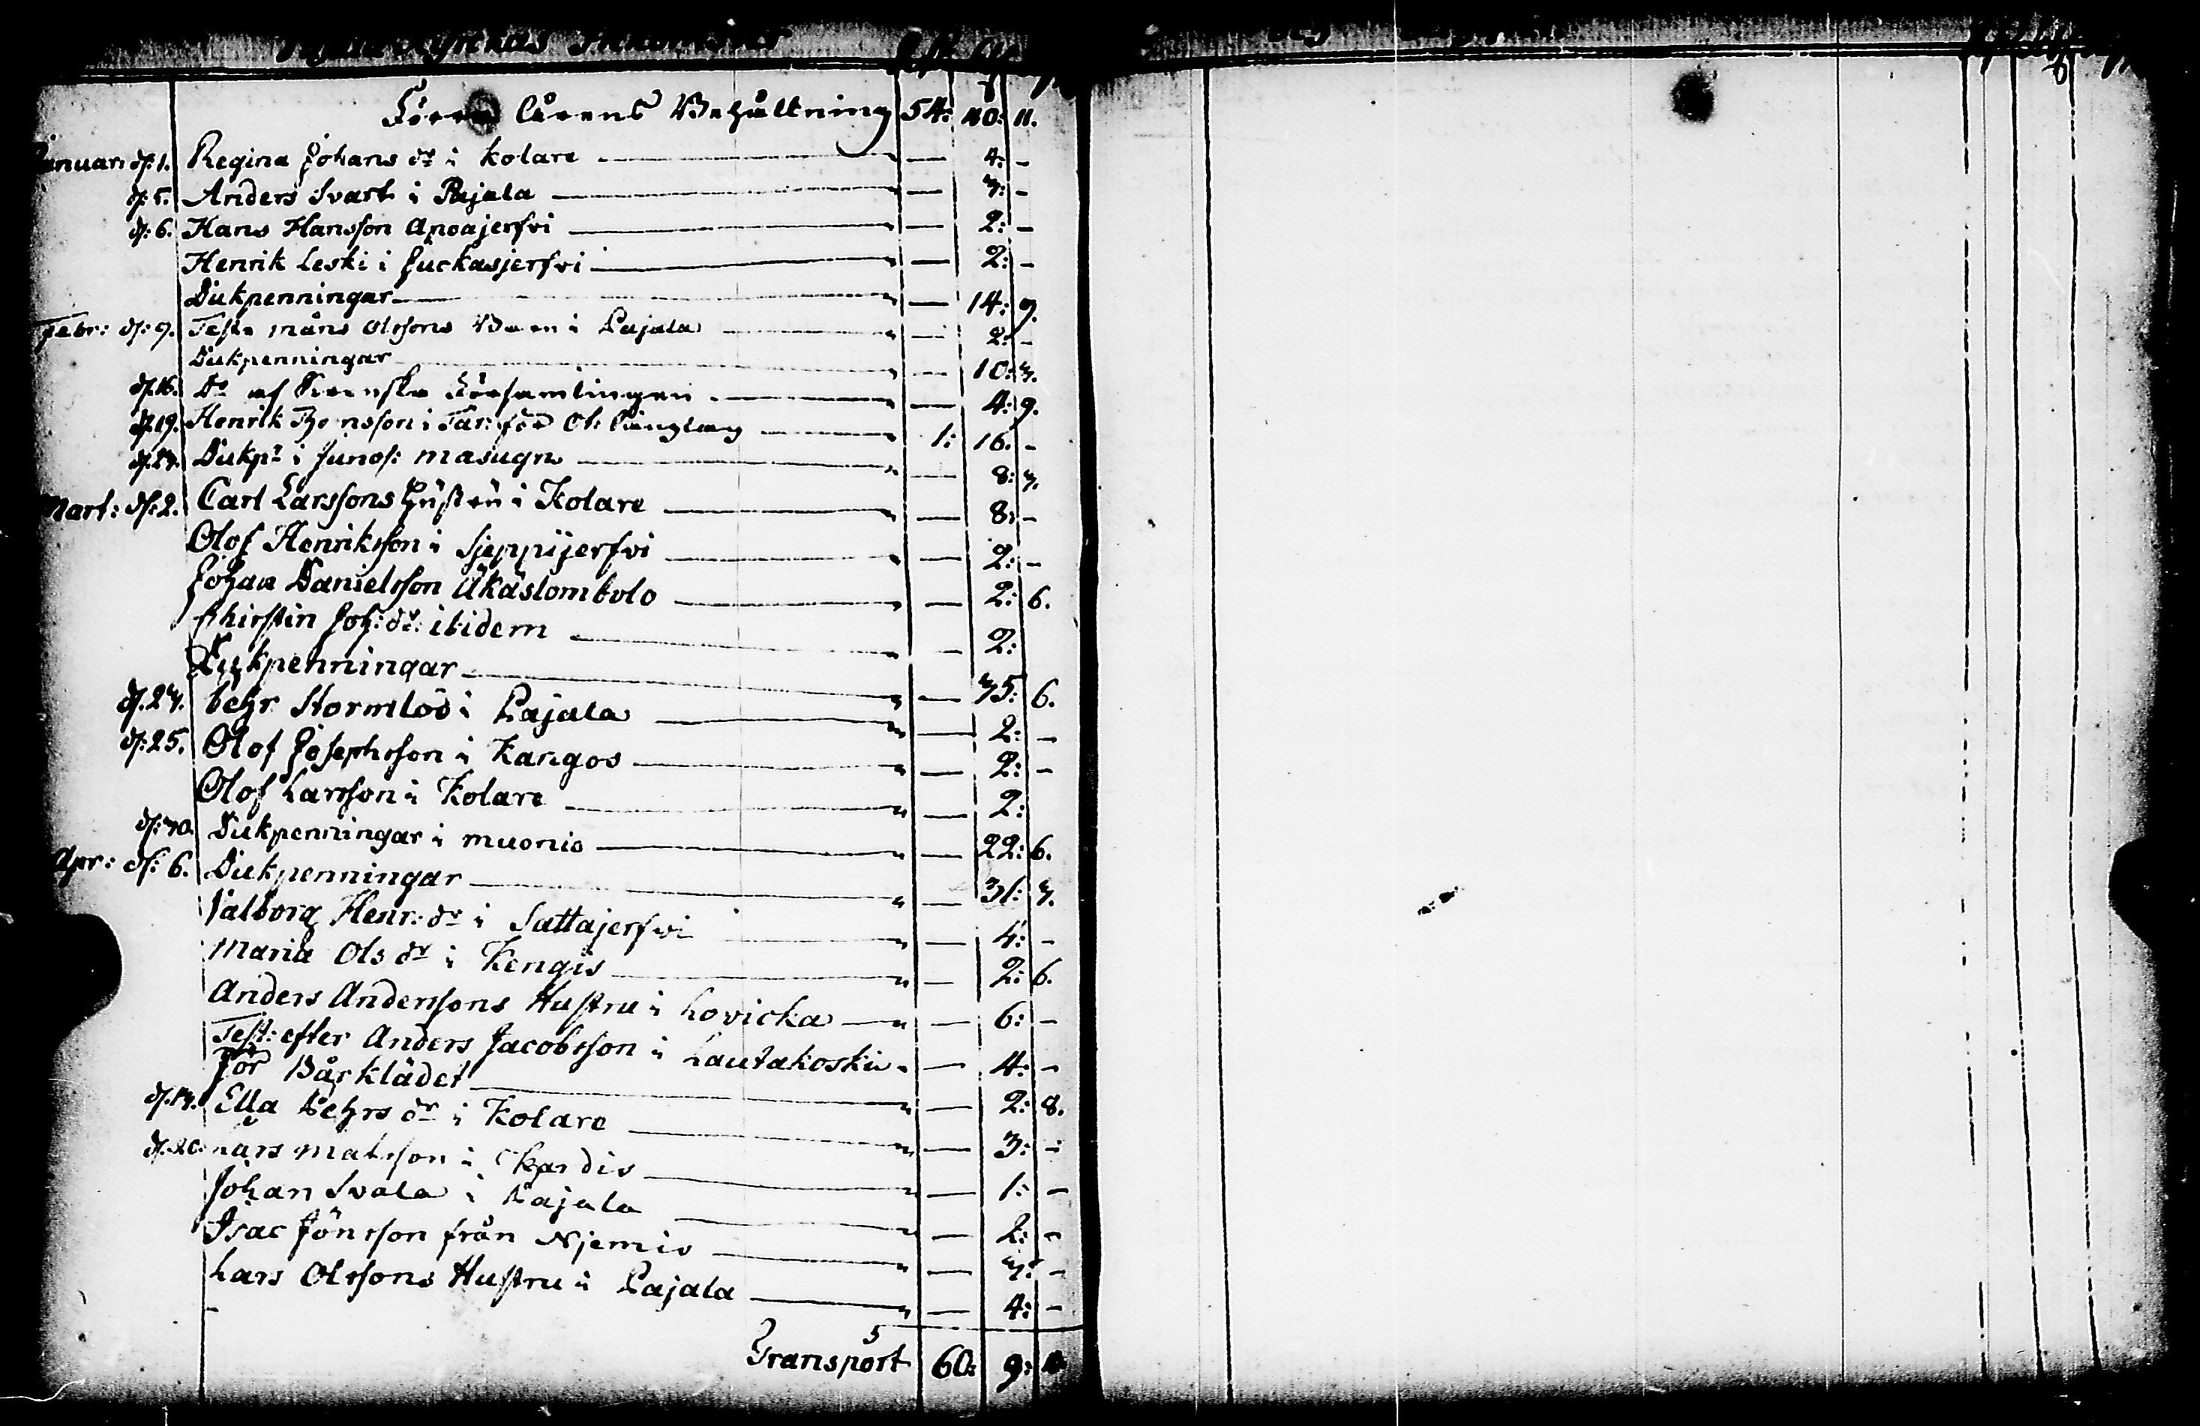 Förra årens Behållning 54: 40: 11.
Januari d: 1. Regina Johans dr i Kolare — 4: -
d: 5. Anders Svart i Pajala — 3: -
d: 6. Hans Hansson Apoajerfvi — 2: -
Henrik Leski i Juckasjerfvi — 2: -
Dukpenningar — 14: 9.
Febr: d: 9. Teste måns Olssons Barn i Pajala — 2: -
Dukpenningar — 10: 3.
d. 16. Do af Svenska Församlingen — 4: 9.
d. 19. Henrik i Tär: för Ol: 1: 16. -
d. 23. Dukpr i Junos: masugn — 8: 3.
Mart: d: 2. Carl Larssons Hustru i Kolare — 8: -
Olof Henriksson i Sjeppijerfvi — 2: -
Johan Danielsson Äkäslombolo — 2: 6.
Chirstin Joh: dr: ibidem — 2:
Dukpenningar — 35: 6.
d. 23. Pehr Stormlöd i Pajala — 2: -
d: 25. Olof Josephsson i Kangos — 2: -
Olof Larsson i Kolare — 2:
d: 30. Dukpenningar i muonio — 22: 6.
Apr: d: 6. Dukpenningar — 31: 3.
Valborg Henr: dr i Sattajerfvi — 4: -
Maria Ols dr i Kengis — 2: 6.
Anders Anderssons Hustru i Lovicka — 6: -
Test: efter Anders Jacobsson i Lautakoski — 4: -
För Bårklädet — 2: 8.
d. 13. Ella Pehrs dr i Kolare — 3: -
d. 20. Lars Matsson i Kardis — 1: -
Johan Svala i Pajala — 2: -
Isac Jönsson från Njemis — 3: -
Lars Olssons Hustru i Pajala — 4: -
Transport 60: 9: